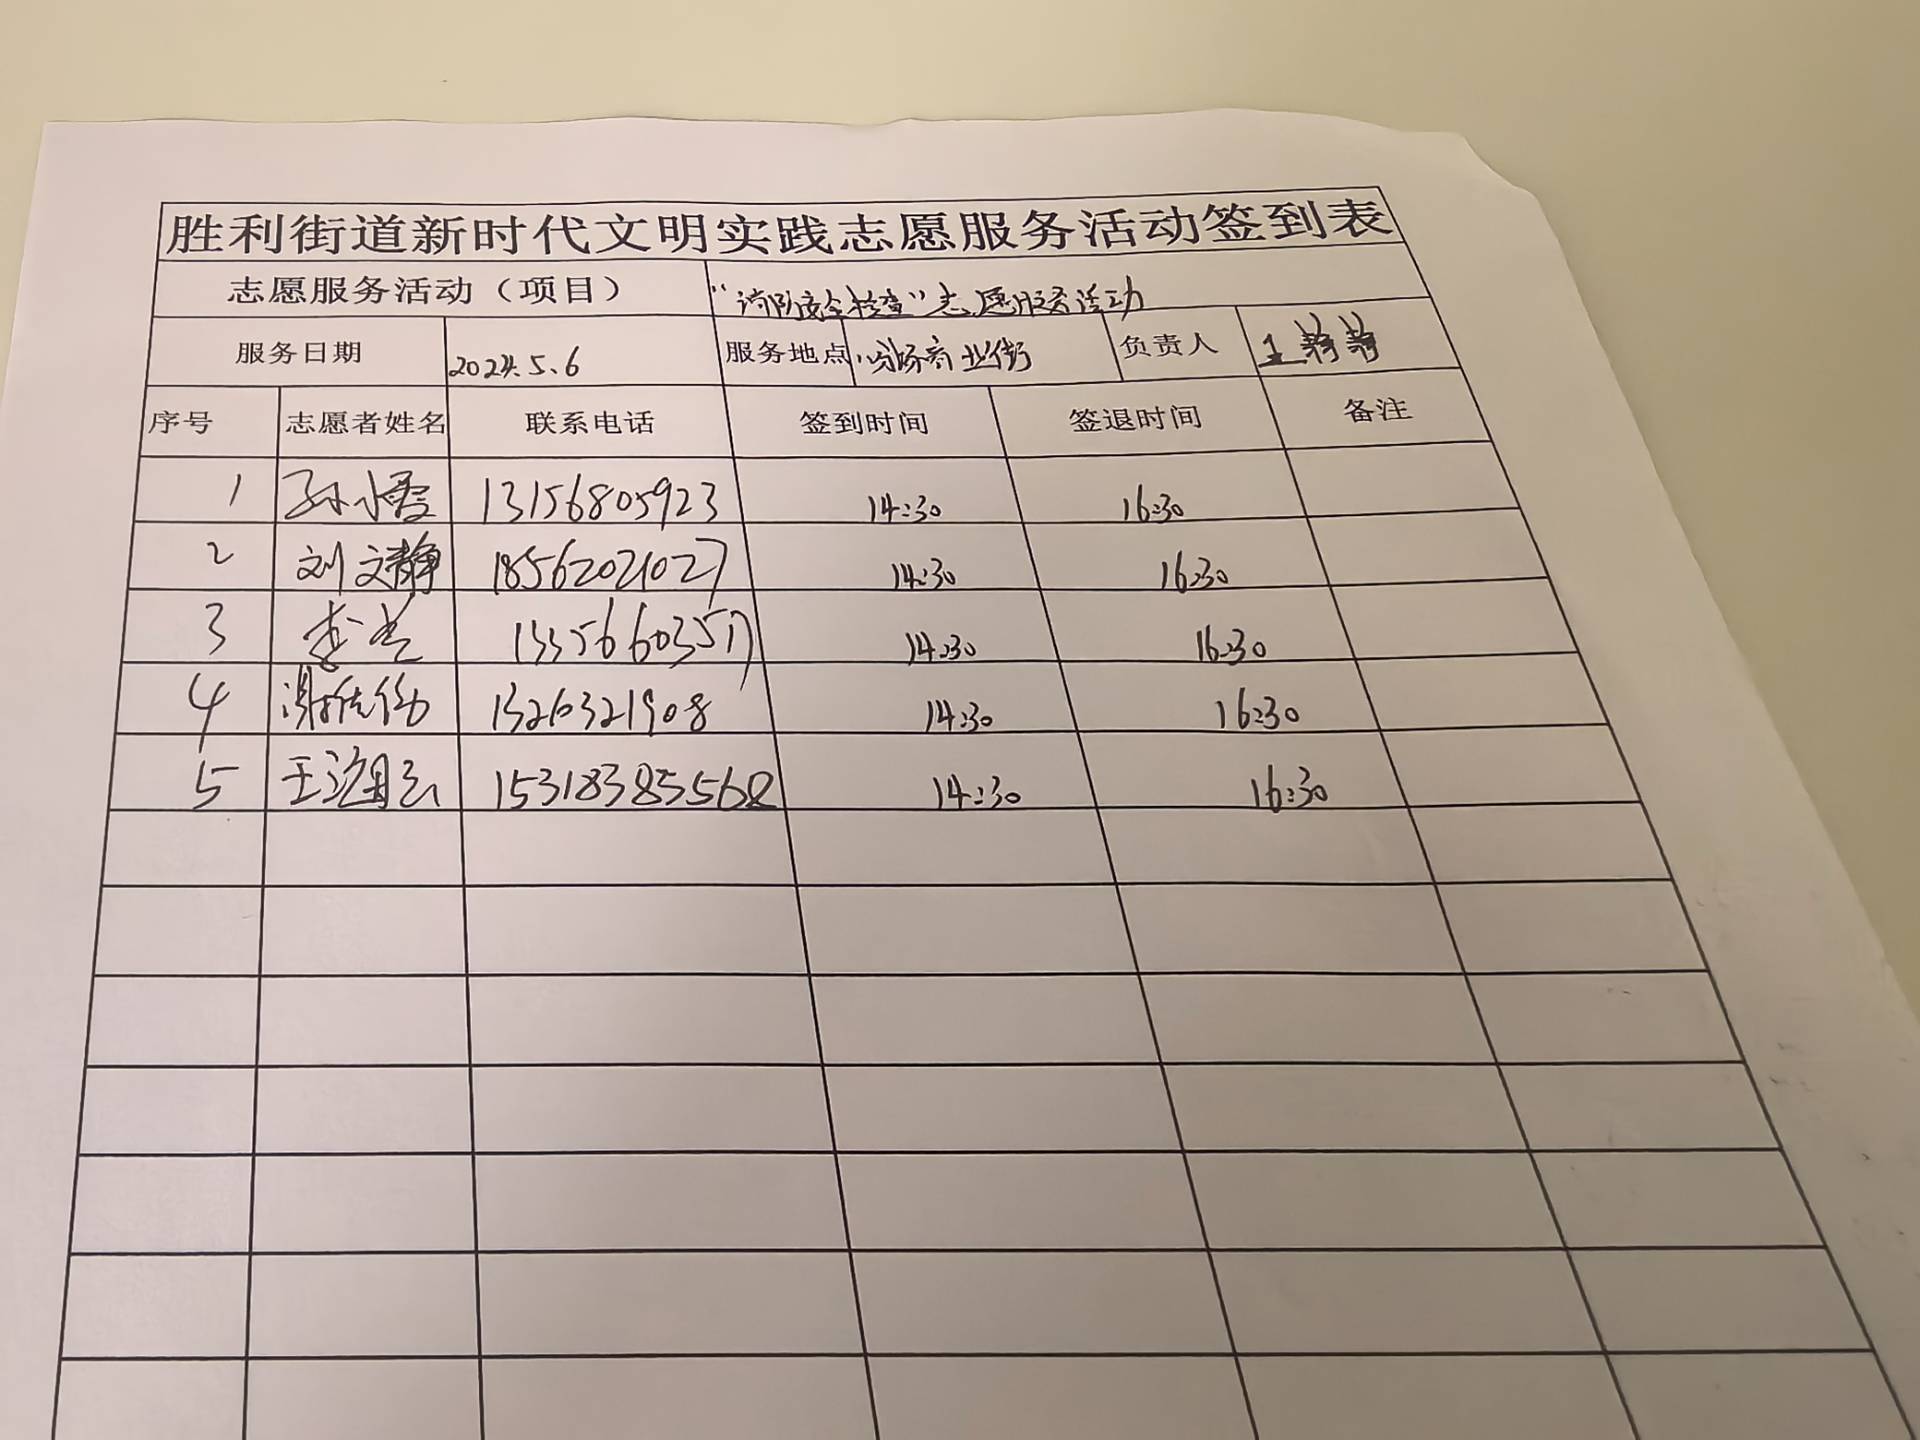 胜利街道新时代文明实践志愿服务活动签到表
志愿服务活动（项目） “消防安全检查”志愿服务活动
服务日期 2024.5.6 服务地点 商业街 负责人 王
序号 志愿者姓名 联系电话 签到时间 签退时间 备注
1 孙小雯 13156805923 14:30 16:30
2 刘文静 18562021027 14:30 16:30
3 李 13356603517 14:30 16:30
4 谢 13263321908 14:30 16:30
5 王 15318385568 14:30 16:30